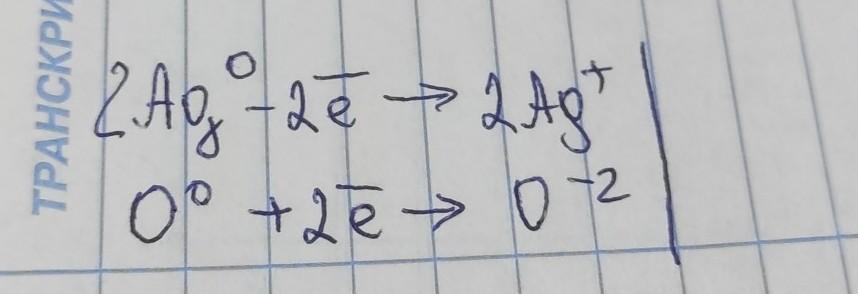 ТРАНСКРИ
2Ag⁰ - 2e̅ → 2Ag⁺
O⁰ + 2e̅ → O⁻²